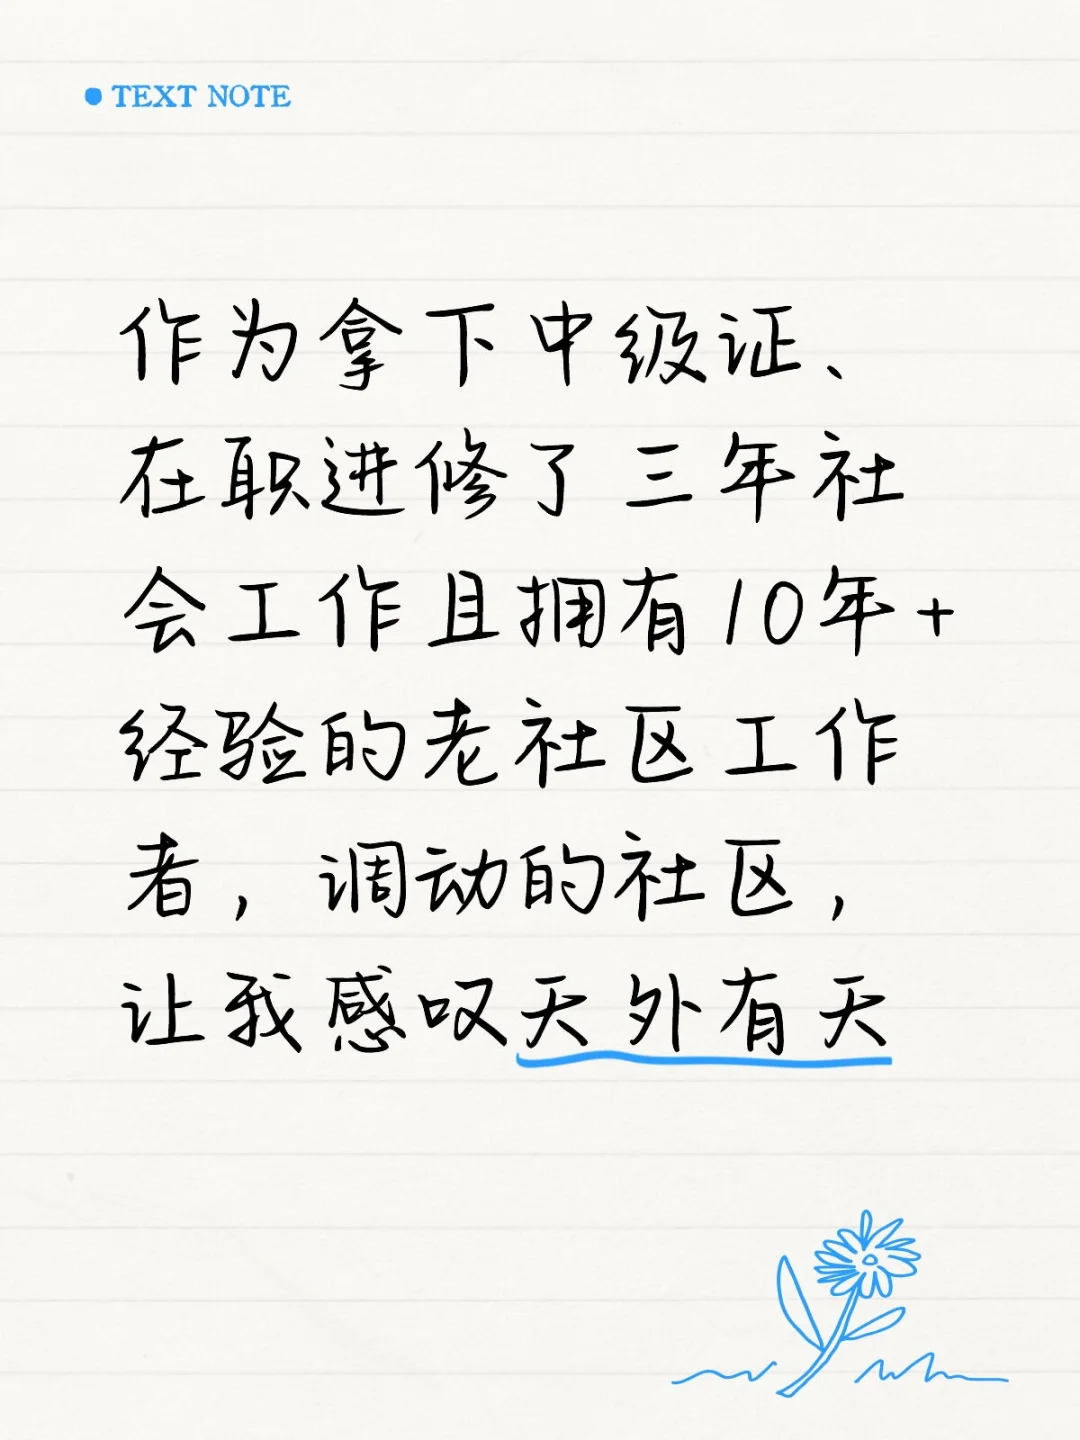 TEXT NOTE
作为拿下中级证、
在职进修了三年社
会工作且拥有10年+
经验的老社区工作
者，调动的社区，
让我感叹天外有天